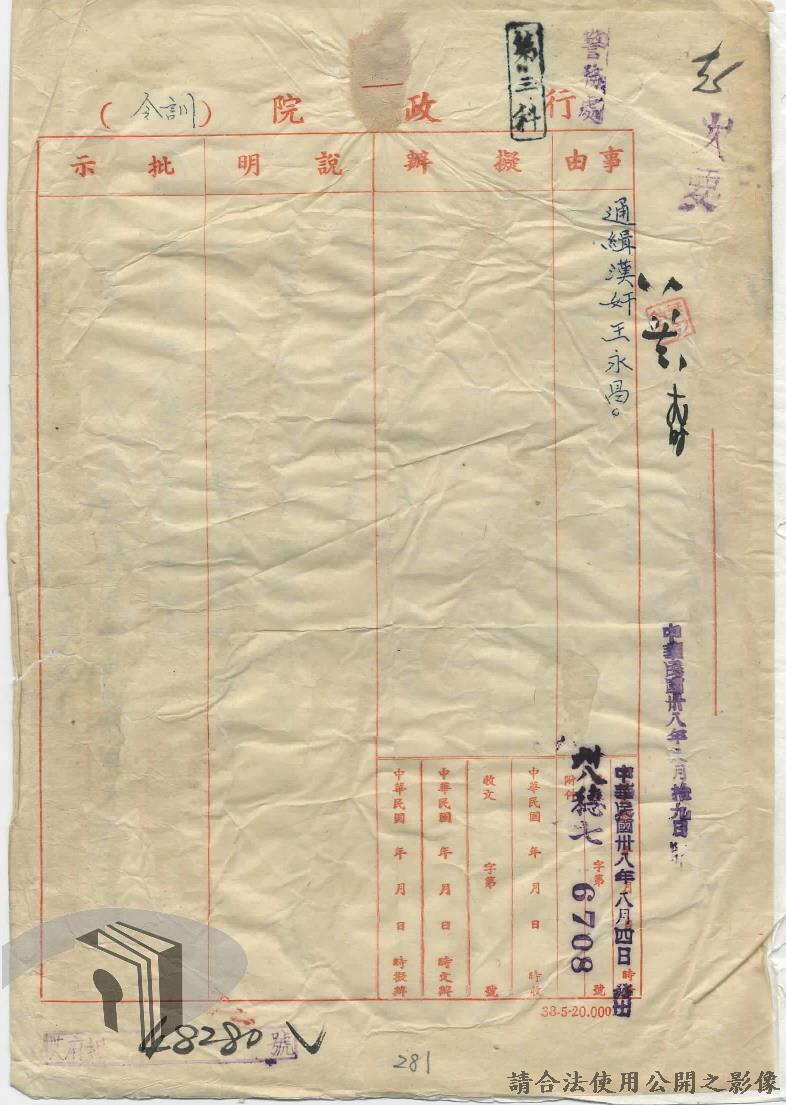 行政院（訓令）
第三科
警務處
事由
擬辦
說明
批示
通緝漢奸王永昌。
中華民國卅八年 月拾九日
中華民國卅八年八月四日
時
附件
字第
號
卅八穗七
6708
中華民國 年 月 日 時收
收文 字第 號
中華民國 年 月 日 時交辦
中華民國 年 月 日 時擬辦
38-5-20.000
48280
號
281
請合法使用公開之影像